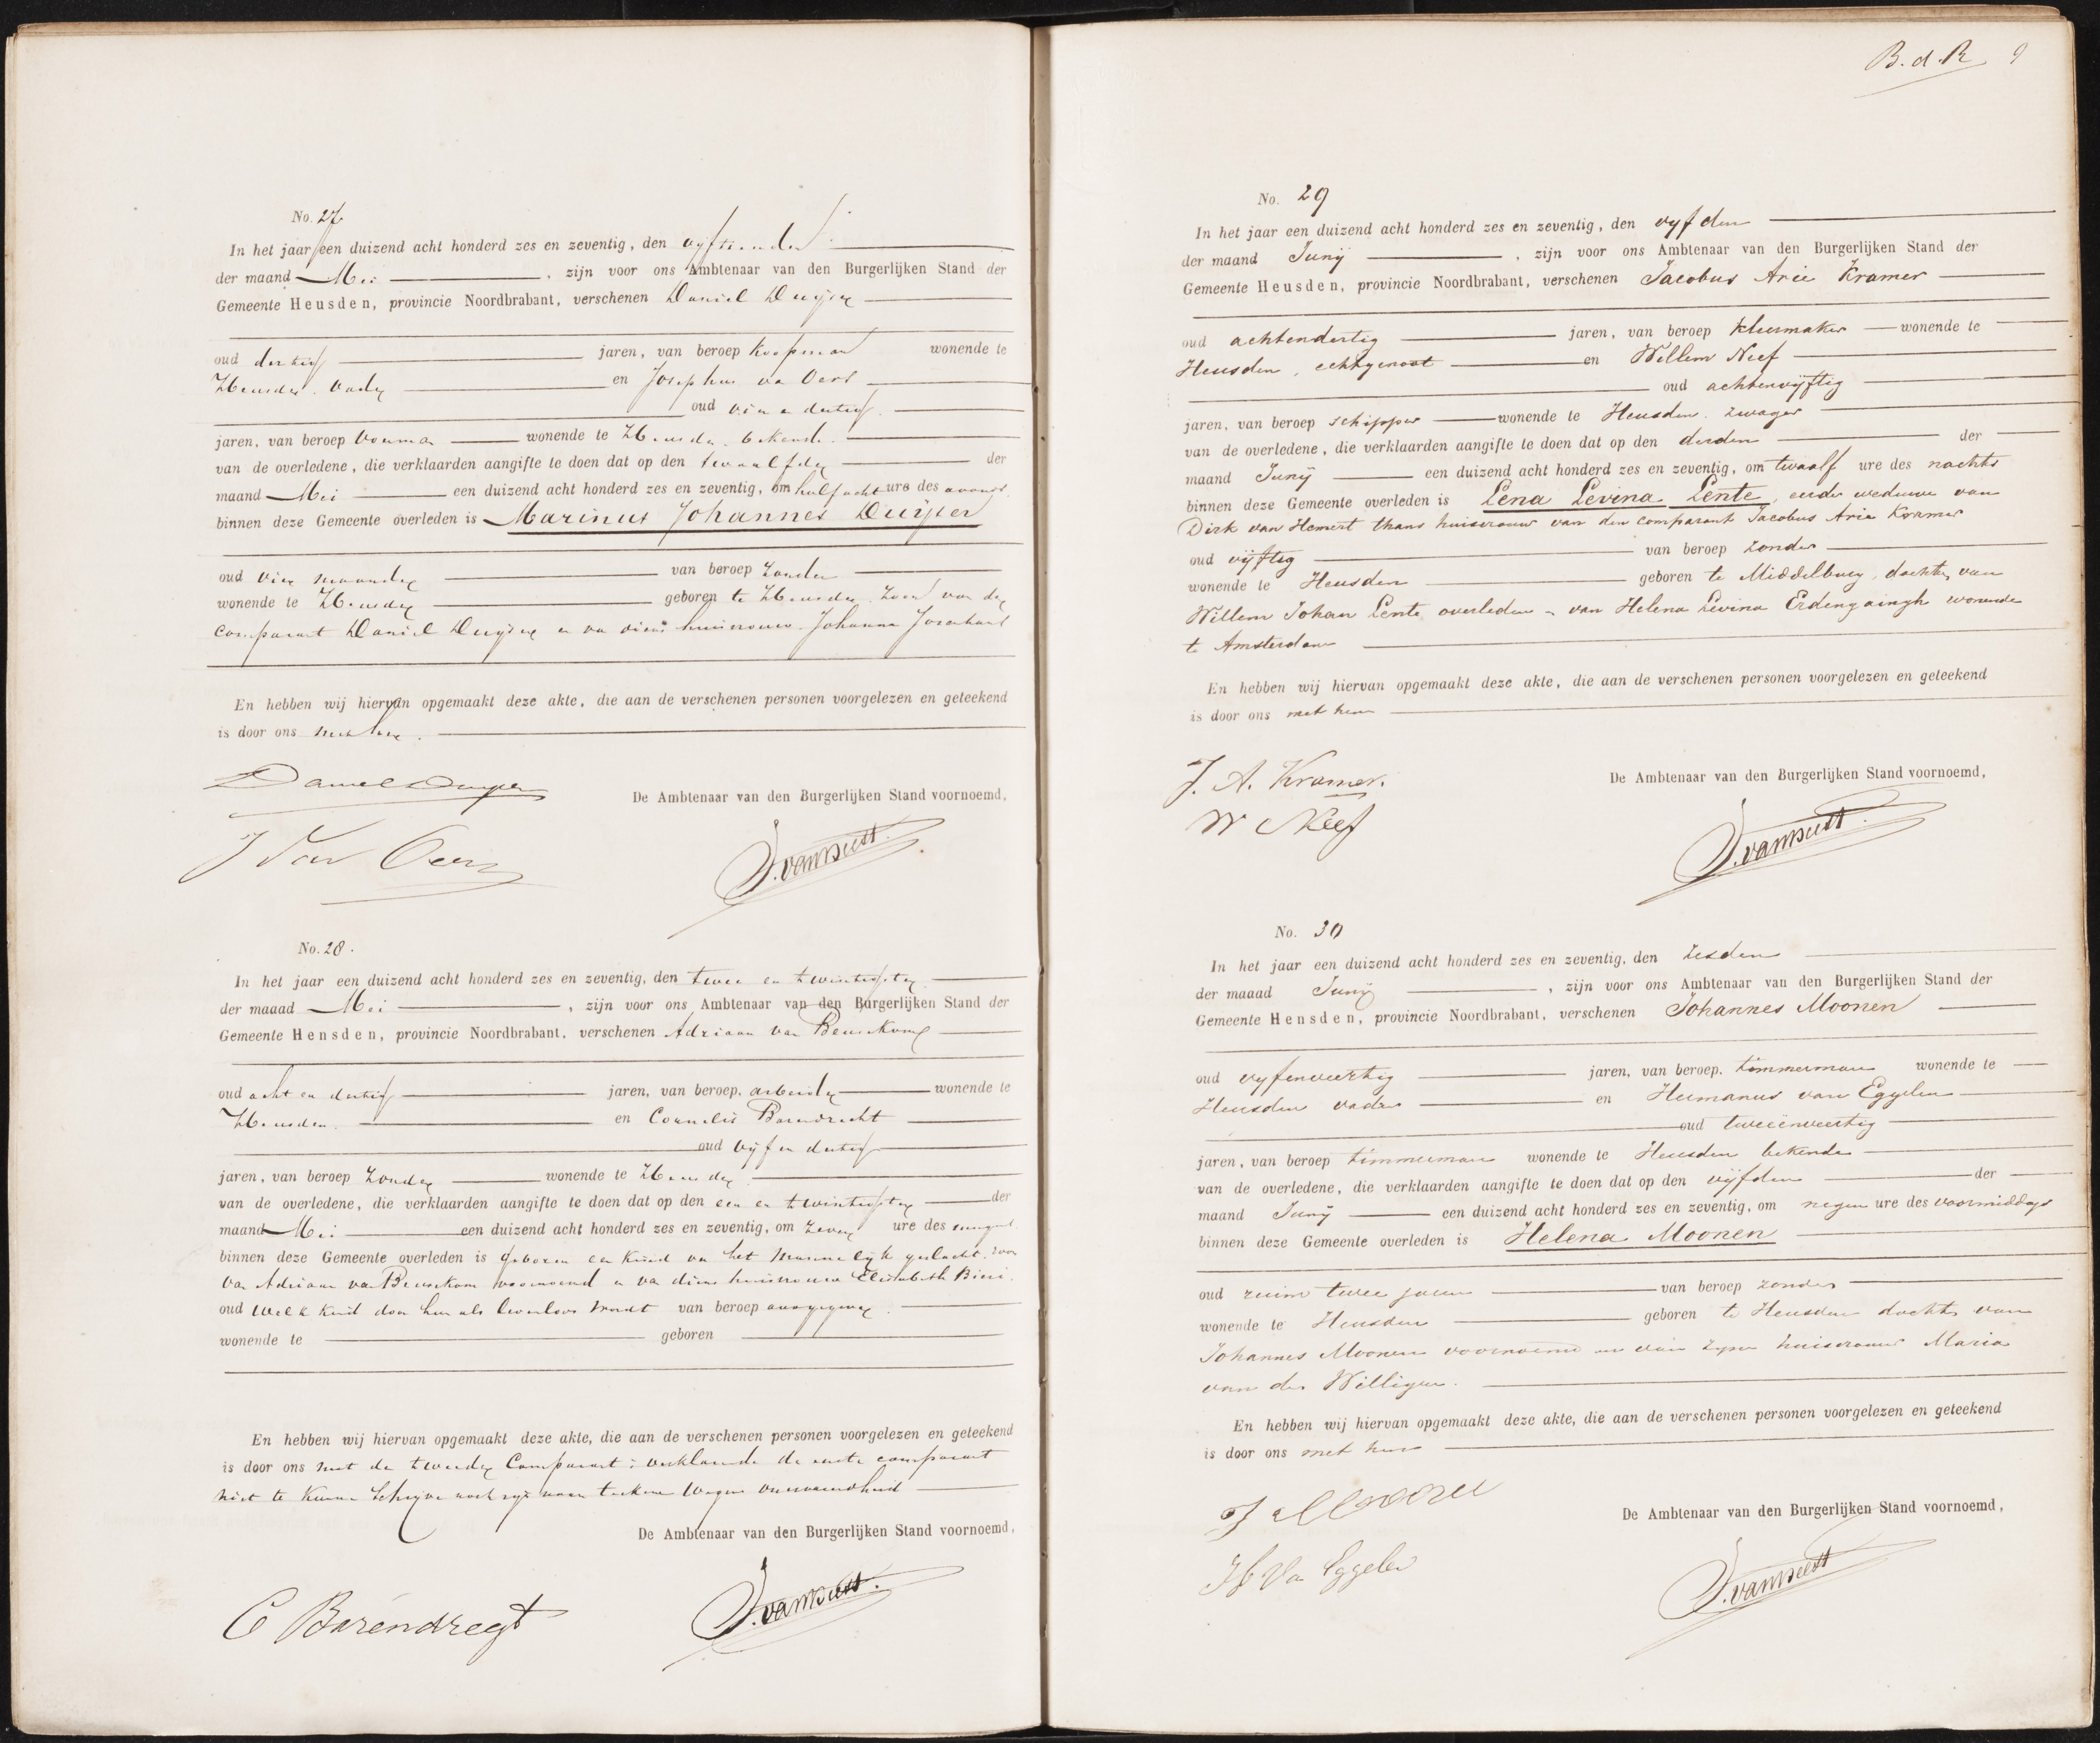 No. 27
In het jaar een duizend acht honderd zes en zeventig, den vyftienden
der maand Mei, zijn voor ons Ambtenaar van den Burgerlijken Stand der
Gemeente Heusden, provincie Noordbrabant, verschenen Daniel Duijser
oud dertig jaren, van beroep koopman wonende te
Heusden, vader en Josephus van Oers
oud vier en dertig
jaren, van beroep wonende te Heusden bekende
van de overledene, die verklaarden aangifte te doen dat op den twaalfden der
maand Mei een duizend acht honderd zes en zeventig, om half acht ure des avonds
binnen deze Gemeente overleden is Marinus Johannes Duijser
oud vier maanden van beroep zonder
wonende te Heusden geboren te Heusden, zoon van den
comparant Daniel Duijser en van diens huisvrouw Johanna
En hebben wij hiervan opgemaakt deze akte, die aan de verschenen personen voorgelezen en geteekend
is door ons met hen.
Daniel Duijser
De Ambtenaar van den Burgerlijken Stand voornoemd,
J Van Oers
No. 28.
In het jaar een duizend acht honderd zes en zeventig, den twee en twintigsten
der maaad Mei, zijn voor ons Ambtenaar van den Burgerlijken Stand der
Gemeente Hensden, provincie Noordbrabant, verschenen Adriaan van Beuzekom
oud acht en dertig jaren, van beroep, arbeider wonende te
Heusden. en Cornelis Barendrecht
oud vijf en dertig
jaren, van beroep zonder wonende te Heusden
van de overledene, die verklaarden aangifte te doen dat op den een en twintigsten der
maand Mei een duizend acht honderd zes en zeventig, om zeven ure des
binnen deze Gemeente overleden is geboren een kind van het mannelijk geslacht, zoon
van Adriaan van Beuzekom voornoemd en van diens huisvrouw Elisabeth
oud welk kind door hen als levenloos wordt van beroep aangegeven.
wonende te geboren
En hebben wij hiervan opgemaakt deze akte, die aan de verschenen personen voorgelezen en geteekend
is door ons met de tweede Comparant; verklarende de eerste comparant
niet te kunnen schrijven noch zijn naam teekenen wegens onervarendheid
De Ambtenaar van den Burgerlijken Stand voornoemd,
C Barendregt
B. d. R 9
No. 29
In het jaar een duizend acht honderd zes en zeventig, den vyfden
der maand Junij, zijn voor ons Ambtenaar van den Burgerlijken Stand der
Gemeente Heusden, provincie Noordbrabant, verschenen Jacobus Arie Kramer
oud achtendertig jaren, van beroep kleermaker wonende te
Heusden, echtgenoot en Willem Neef
oud achtenvijftig
jaren, van beroep schipper wonende te Heusden. zwager
van de overledene, die verklaarden aangifte te doen dat op den derden der
maand Junij een duizend acht honderd zes en zeventig, om twaalf ure des nachts
binnen deze Gemeente overleden is Lena Levina Lente, eerder weduwe van
Dirk van Hemert thans huisvrouw van den comparant Jacobus Arie Kramer
oud vijftig van beroep zonder
wonende te Heusden geboren te Middelburg, dochter van
Willem Johan Lente overleden en van Helena Levina Erdengaingh wonende
te Amsterdam
En hebben wij hiervan opgemaakt deze akte, die aan de verschenen personen voorgelezen en geteekend
is door ons met hen
J. A. Kramer.
De Ambtenaar van den Burgerlijken Stand voornoemd,
W Neef
No. 30
In het jaar een duizend acht honderd zes en zeventig, den zesden
der maaad Junij, zijn voor ons Ambtenaar van den Burgerlijken Stand der
Gemeente Hensden, provincie Noordbrabant, verschenen Johannes Moonen
oud vyfenveertig jaren, van beroep, timmerman wonende te
Heusden vader en Hermanus van Eggelen
oud tweeënveertig
jaren, van beroep timmerman wonende te Heusden bekende
van de overledene, die verklaarden aangifte te doen dat op den vijfden der
maand Junij een duizend acht honderd zes en zeventig, om negen ure des voormiddags
binnen deze Gemeente overleden is Helena Moonen
oud ruim twee jaren van beroep zonder
wonende te Heusden geboren te Heusden dochter van
Johannes Moonen voornoemd en van zijne huisvrouw Maria
van der Willigen.
En hebben wij hiervan opgemaakt deze akte, die aan de verschenen personen voorgelezen en geteekend
is door ons met hen
J Moonen
De Ambtenaar van den Burgerlijken Stand voornoemd,
H Van Eggelen